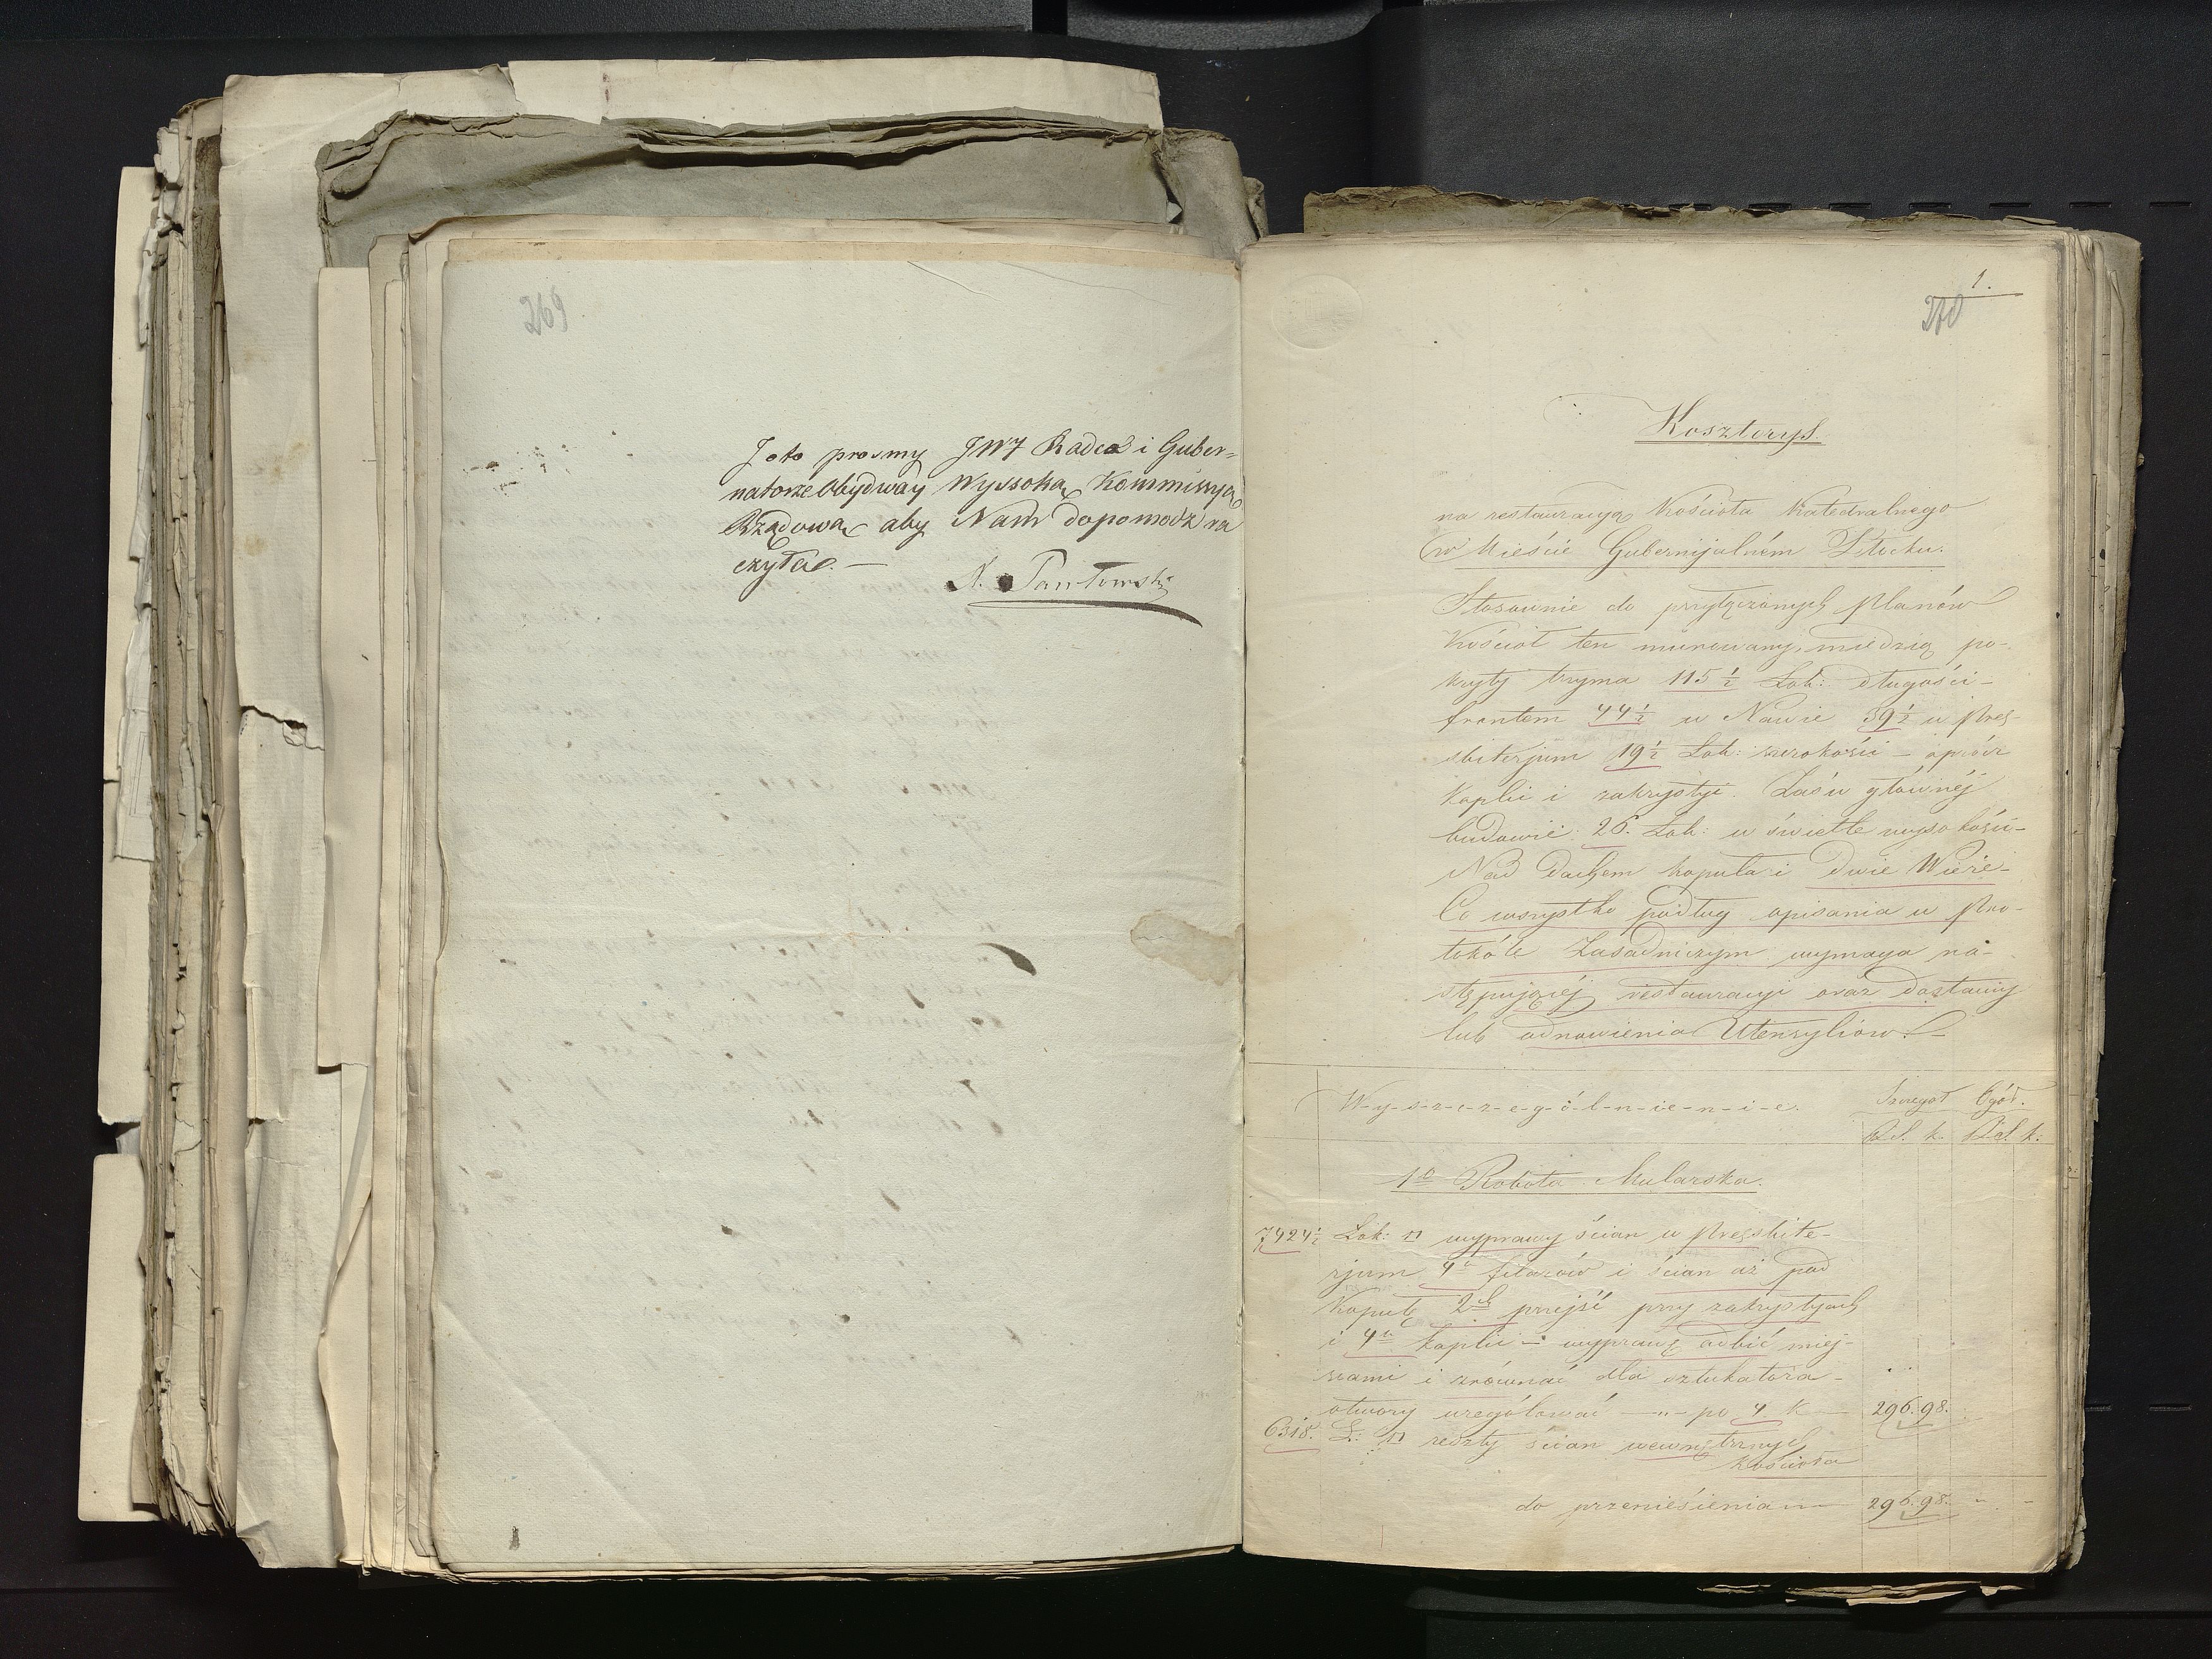 269
J oto prosmy JWJ Radca i Guber=
natorze Obydway Wyssoką Kommissyą
Rządową aby Nam dopomodz ra
czyła. —
Pawłowski
1.
270
Kosztorys.
na restauracyą Kościoła Katedralnego
w Mieście Gubernijalném Płocku.
Stosownie do przyłączonych planów
Kościoł ten murowany, miedzią po-
kryty trzyma 115½ Łok: długości -
frontem 44½ w Nawie 39½ w Pres-
biterjum 19½ Łok: szerokości - oprócz
Kaplic i zakrystyi. Zaś w głównéj
budowie 26. Łok: w świetle wysokości -
Nad dachem kopuła i dwie Wieże -
Co wszystko podług opisania w Pro-
tokóle Zasadniczym wymaga na-
stępującéj restauracyi oraz dostawy
lub odnowienia Utensyliów. -
W-y-s-z-c-z-e-g-ó-l-n-ie-n-i-e. Szczegół Ogół.
Rsl. k. Rsl. k.
1o Robota Mularska.
7424½ Łok: □ wyprawy ścian w Presbite-
rjum 4ch filarów i ścian aż pod
Kopułę 2ch przejść przy zakrystyach
i 4ch kaplic - wyprawę odbić miej-
scami i zrównać dla sztukatora -
otwory uregulować —"— po 4 k 296.98.
6318. Ł: □ reszty ścian wewnętrznych
Kościoła
do przeniesienia — 296.98. " -